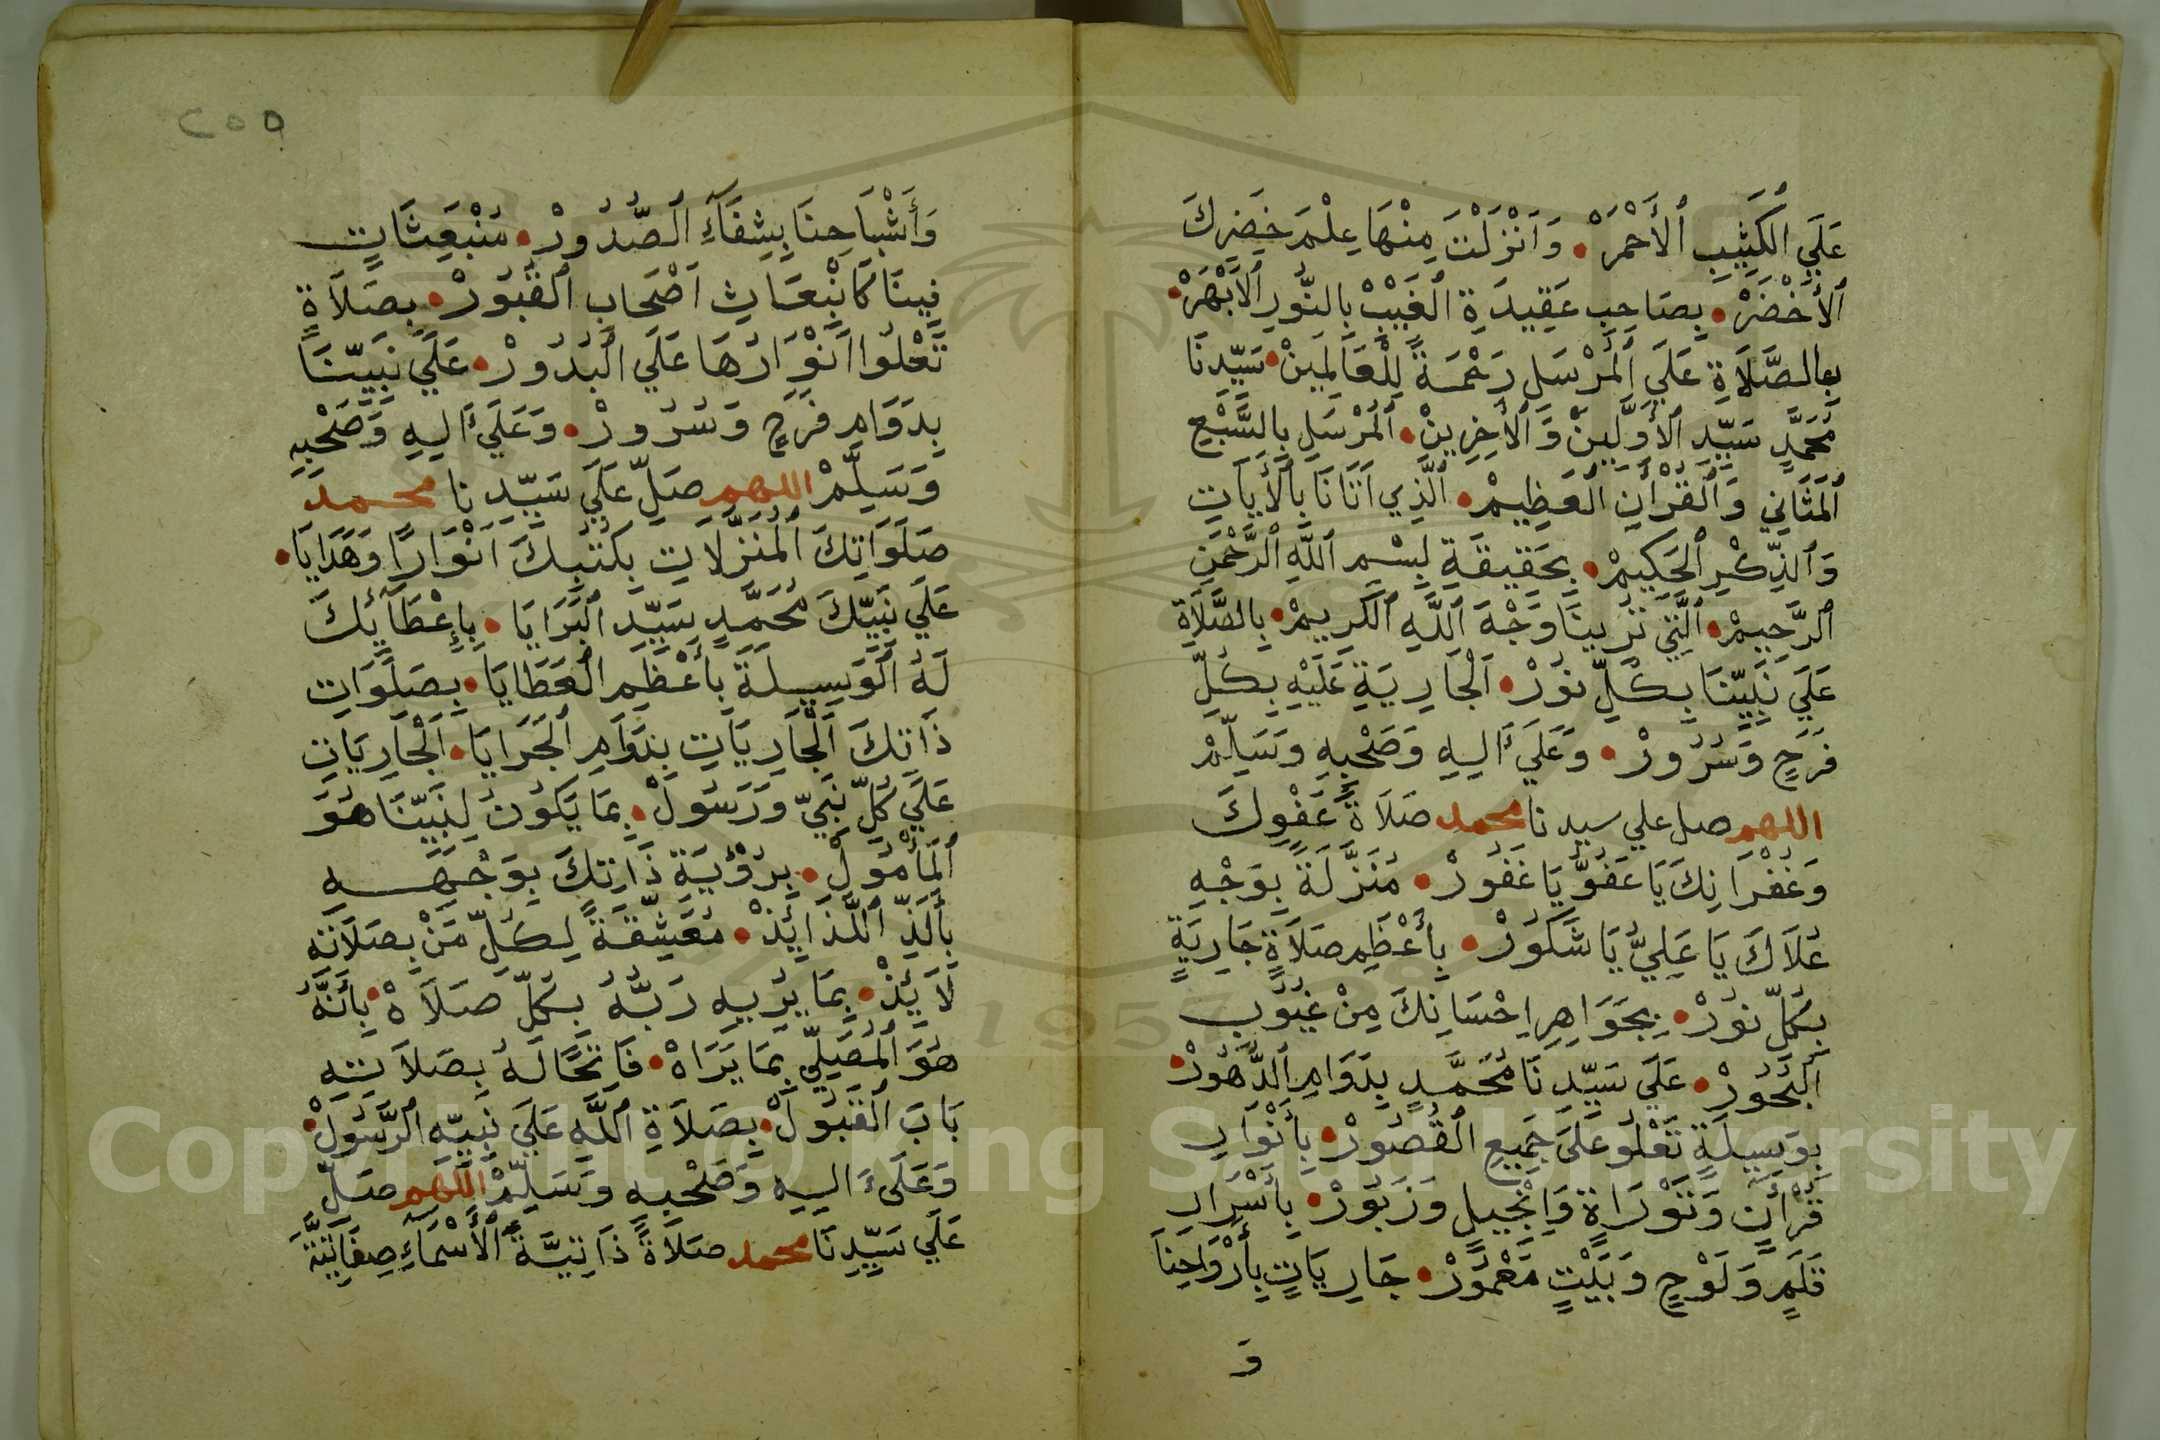 عَلَي الكَثِيبِ ٱلأَحْمَرْ • وَاَنْزَلْتَ مِنْهَا عِلْمَ خَضِرِكَ
ٱلأَخْضَرْ • بِصَاحِبِ عَقِيدَةِ ٱلغَيْبْ بِالنُّورِ ٱلاَبْهَرْ •
بِالصَّلَاةِ عَلَي ٱلمُرْسَلِ رَحْمَةً لِلْعَالَمِينْ • سَيِّدِنَا
مُحَمَّدٍ سَيِّدِ ٱلأَوَّلِينْ وَٱلأَخِرِينْ • ٱلمُرْسَلِ بِالسَّبْعِ
ٱلمَثَانِي وَٱلقُرْأَنِ ٱلعَظِيمْ • ٱلَّذِي اَتَانَا بِٱلأَيَاتِ
وَٱلذِّكْرِ ٱلحَكِيمْ • بِحَقِيقَةِ بِسْمِ ٱللَّهِ ٱلرَّحْمَنِ
ٱلرَّحِيمْ • ٱلَّتِي تُرِينَا وَجْهَ ٱللَّهِ ٱلكَرِيمْ • بِالصَّلَاةِ
عَلَي نَبِيِّنَا بِكُلِّ نُورْ • ٱلْجَارِيَةِ عَلَيْهِ بِكُلِّ
فَرَحٍ وَسُرُورْ • وَعَلَيَ أَلِهِ وَصَحْبِهِ وَسَلِّمْ
اللهم صل علي سيدنا محمد صَلَاةَ عَفْوِكَ
وَغُفْرَانِكَ يَا عَفُوُّ يَا غَفُورْ • مُنَزَّلَةً بِوَجْهِ
عُلَاكَ يَا عَلِيُّ يَا شَكُورْ • بِأَعْظَمِ صَلَاةٍ جَارِيَةٍ
بِكُلِّ نُورْ • بِجَوَاهِرِ اِحْسَانِكَ مِنْ غُيُوبِ
ٱلبُحُورْ • عَلَي سَيِّدِنَا مُحَمَّدٍ بِدَوَامِ ٱلدُّهُورْ •
بِوَسِيلَةٍ تَعْلُو عَلَى جَمِيعِ ٱلقُصُورْ • بِأَنْوَارِ
قُرْأَنٍ وَتَوْرَاةٍ وَاِنْجِيلٍ وَزَبُورْ • بِأَسْرَارِ
قَلَمٍ وَلَوْحٍ وَبَيْتٍ مَعْمُورْ • جَارِيَاتٍ بِأَرْوَاحِنَا
وَ
٢٥٥
وَأَشْبَاحِنَا بِشِفَآءِ ٱلصُّدُورْ • مُنْبَعِثَاتٍ
فِينَا كَاِنْبِعَاثِ اَصْحَابِ ٱلقُبُورْ • بِصَلَاةٍ
تَعْلُوا اَنْوَارُهَا عَلَي ٱلبُدُورْ • عَلَي نَبِيِّنَا
بِدَوَامِ فَرَحٍ وَسُرُورْ • وَعَلَيَ أَلِهِ وَصَحْبِهِ
وَسَلِّمْ اللهم صَلِّ عَلَي سَيِّدِنَا محمد
صَلَوَاتِكَ ٱلمُنَزَّلَاتِ بِكُتُبِكَ اَنْوَارًا وَهَدَايَا •
عَلَي نَبِيِّكَ مُحَمَّدٍ سَيِّدِ ٱلبَرَايَا • بِإِعْطَآئِكَ
لَهُ ٱلوَسِيلَةَ بِأَعْظَمِ ٱلعَطَايَا • بِصَلَوَاتِ
ذَاتِكَ ٱلجَارِيَاتِ بِدَوَامِ ٱلجَرَايَا • ٱلْجَارِيَاتِ
عَلَي كُلِّ نَبِيٍّ وَرَسُولْ • بِمَا يَكُونُ لِنَبِيِّنَا هُوَ
ٱلمَأْمُولْ • بِرُؤْيَةِ ذَاتِكَ بِوَجْهِهِ
بِأَلَذِّ ٱللَّذَائِذْ • مُعَشِّقَةً لِكُلِّ مَنْ بِصَلَاتِهِ
لَائِذْ • بِمَا يُرِيهِ رَبُّهُ بِكُلِّ صَلَاهْ • بِأَنَّهُ
هُوَ ٱلمُصَلِّي بِمَا يَرَاهْ • فَاتِحًا لَهُ بِصَلَاتِهِ
بَابَ ٱلقَبُولْ • بِصَلَاةِ ٱللَّهِ عَلَي نَبِيِّهِ ٱلرَّسُولْ •
وَعَلَىءَ الِهِ وَصَحْبِهِ وَسَلِّمْ اللهم صَلِّ
عَلَي سَيِّدِنَا محمد صَلَاةً ذَاتِيَّةَ ٱلأَسْمَآءِ صِفَاتِيَّةَ
Copyright © King Saud University
1957